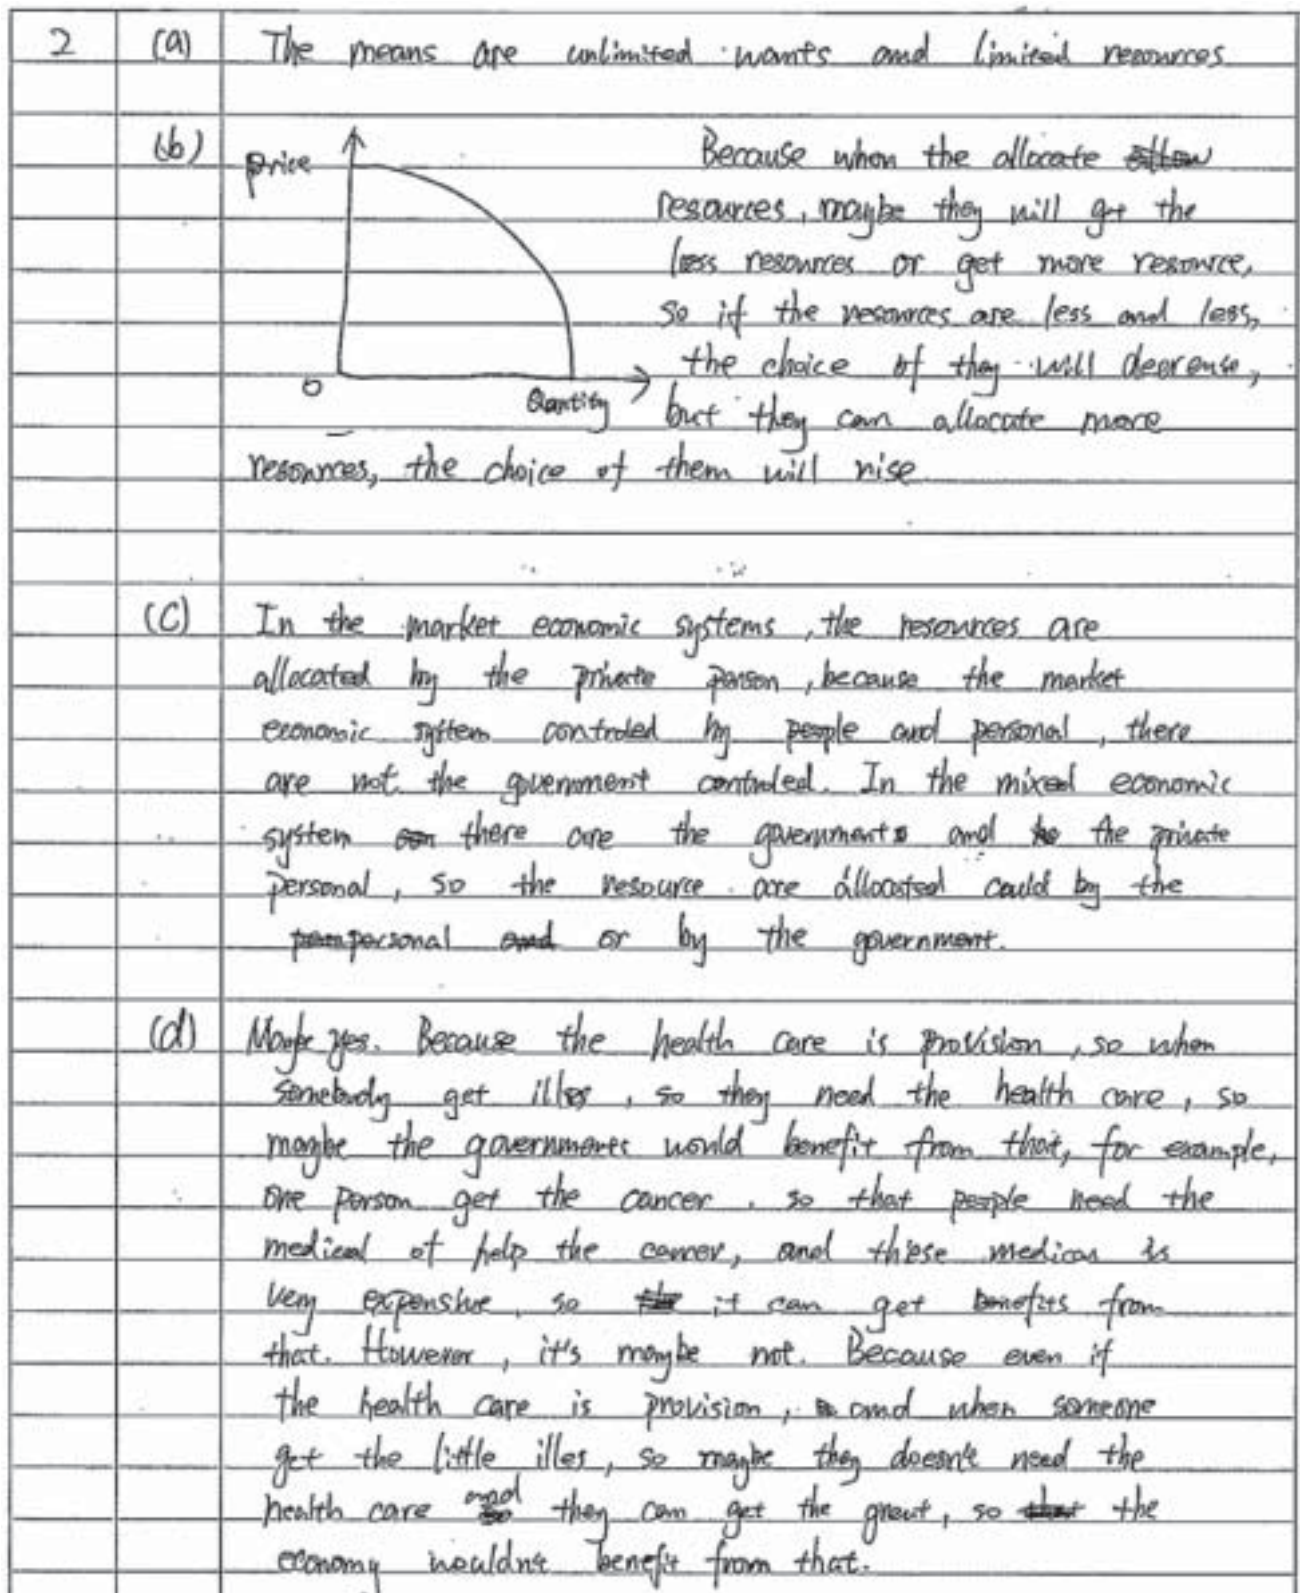 2 (a) The means are unlimited wants and limited resources
(b) price
0
Quantity
Because when the allocate
resources, maybe they will get the
less resources or get more resource,
so if the resources are less and less,
the choice of they will decrease,
but they can allocate more
resources, the choice of them will rise
(c) In the market economic systems, the resources are
allocated by the private person, because the market
economic system controled by people and personal, there
are not the government controled. In the mixed economic
system there are the governments and the private
personal, so the resource are allocated could by the
personal or by the government.
(d) Maybe yes. Because the health care is provision, so when
somebody get illes, so they need the health care, so
maybe the governments would benefit from that, for example,
one person get the cancer. so that people need the
medical of help the cancer, and these medican is
very expensive, so it can get benefits from
that. However, it's maybe not. Because even if
the health care is provision, and when someone
get the little illes, so maybe they doesn't need the
health care and they can get the great, so the
economy wouldn't benefit from that.